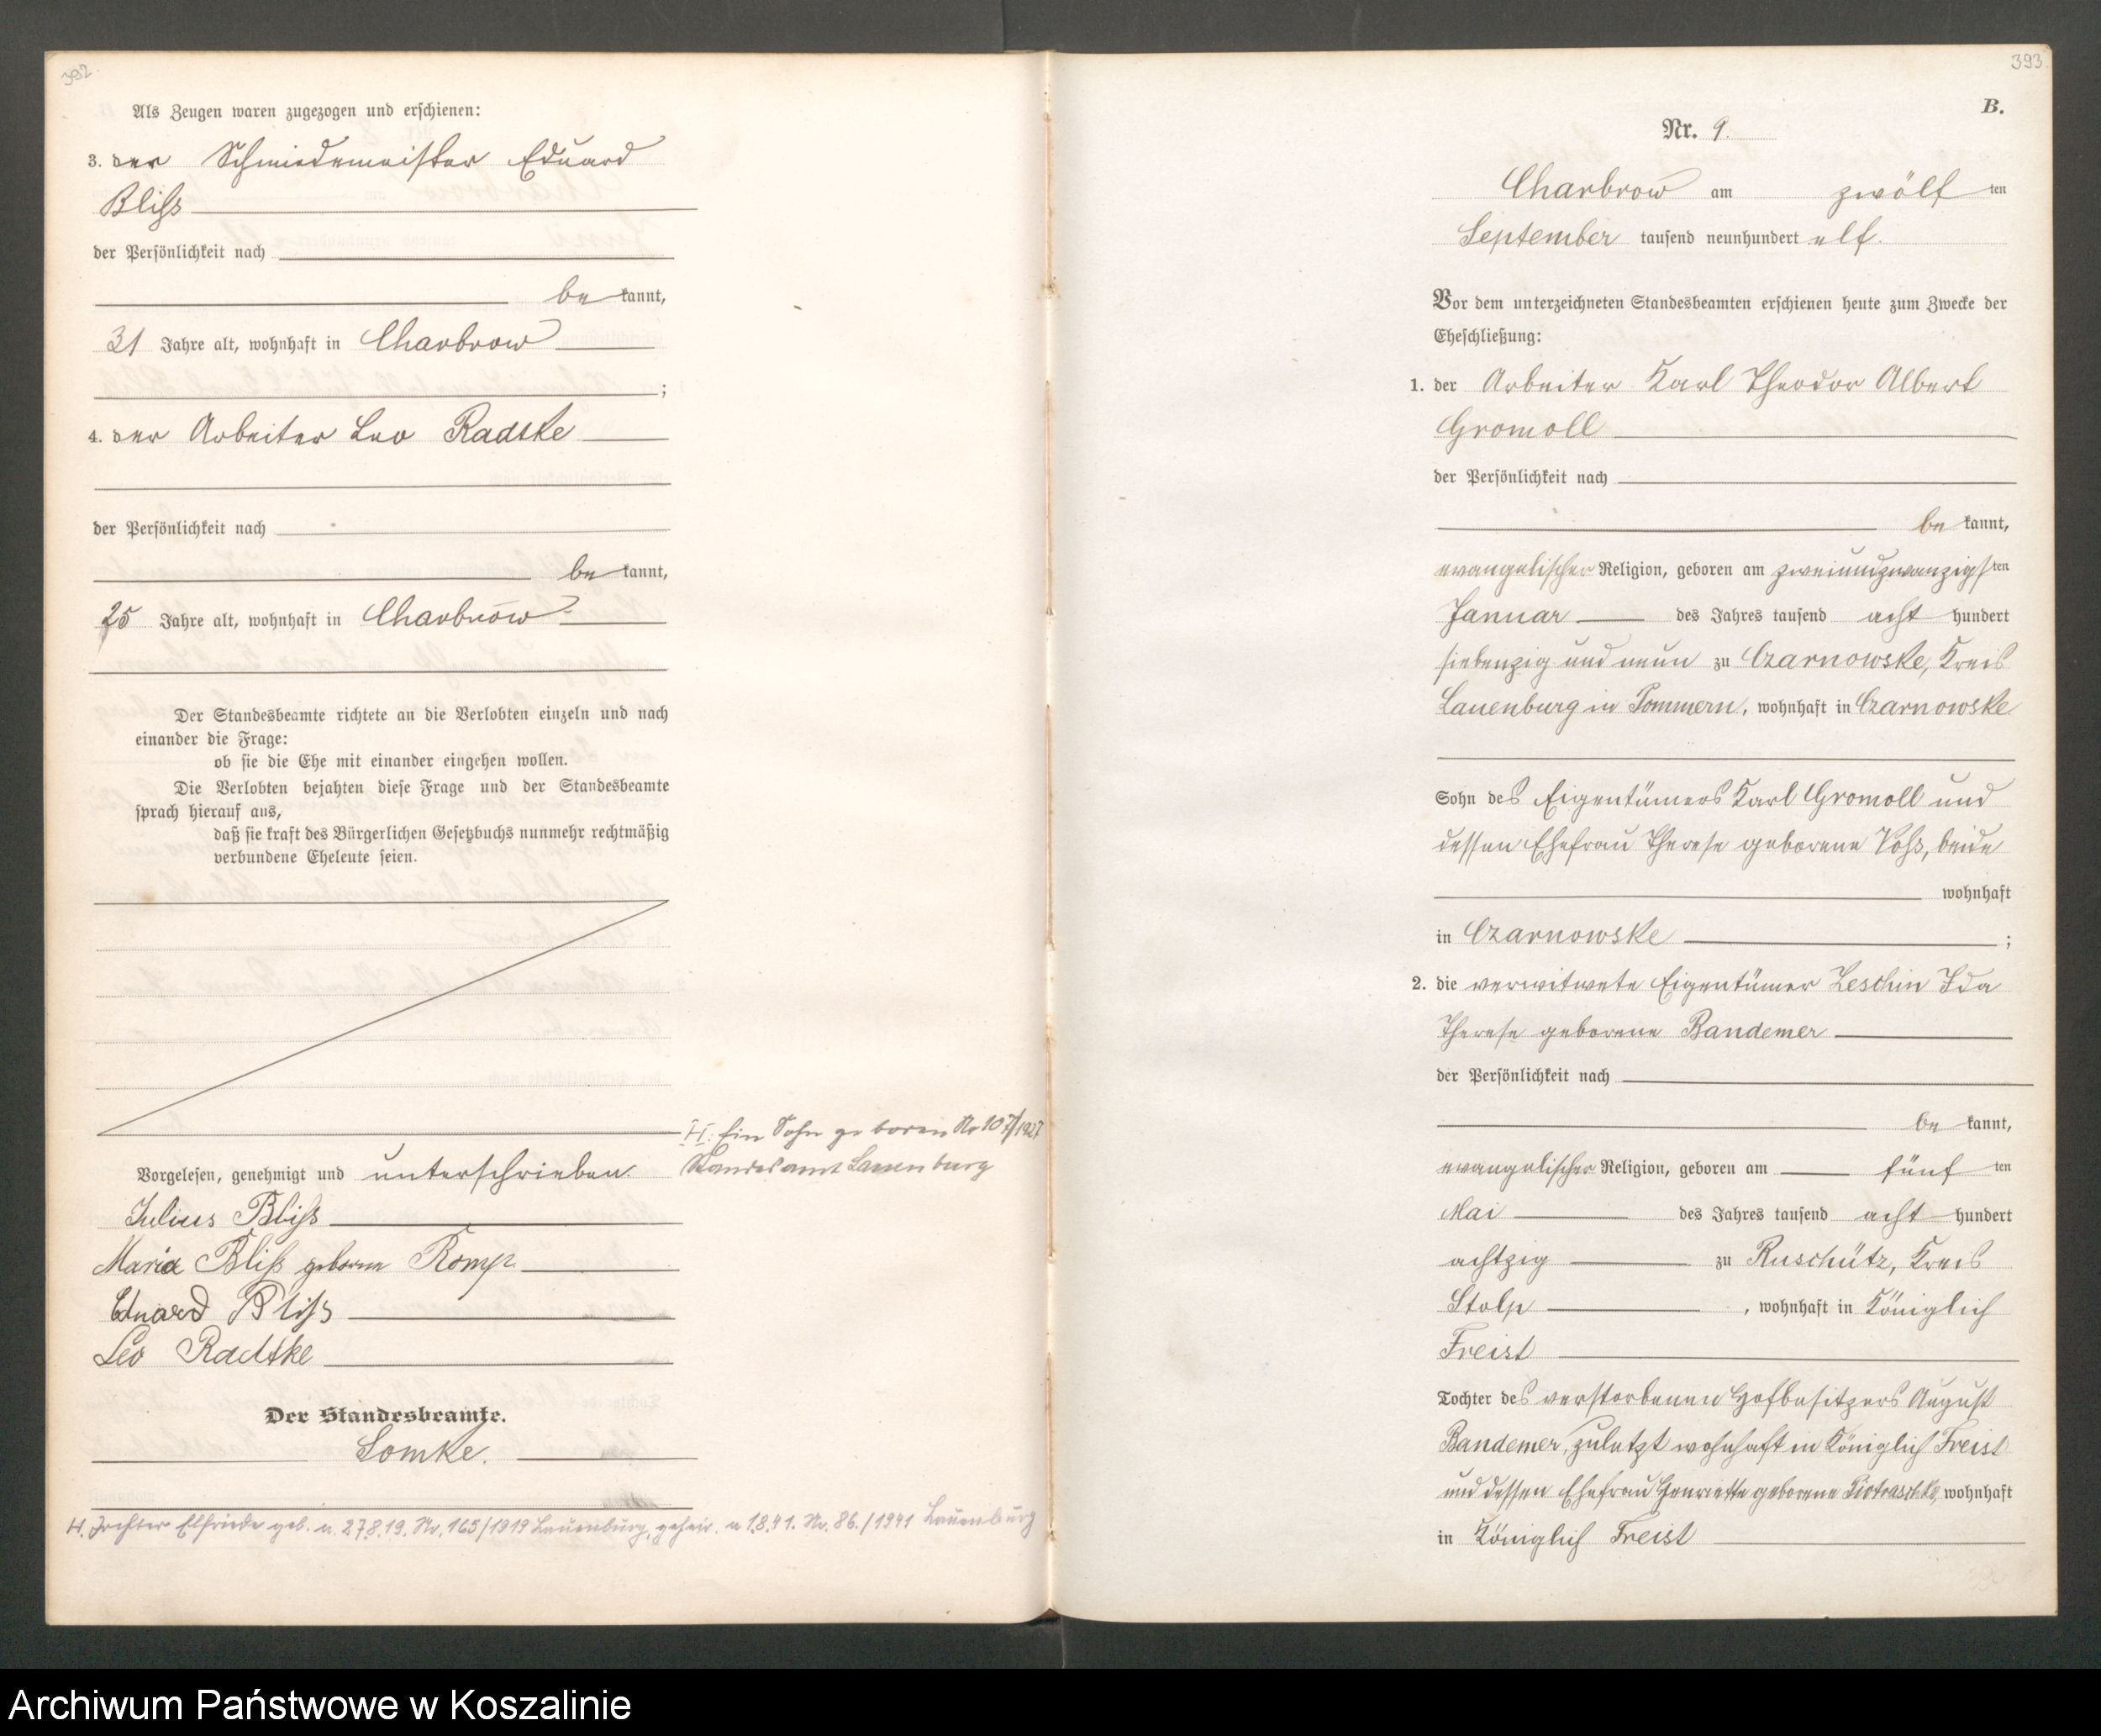 392.
Als Zeugen waren zugezogen und erschienen:
3. der Schmiedemeister Eduard
Bliß
der Persönlichkeit nach
be kannt,
31 Jahre alt, wohnhaft in Charbrow
;
4. der Arbeiter Leo Radtke
der Persönlichkeit nach
be kannt,
25 Jahre alt, wohnhaft in Charbrow
Der Standesbeamte richtete an die Verlobten einzeln und nach
einander die Frage:
ob sie die Ehe mit einander eingehen wollen.
Die Verlobten bejahten diese Frage und der Standesbeamte
sprach hierauf aus,
daß sie kraft des Bürgerlichen Gesetzbuchs nunmehr rechtmäßig
verbundene Eheleute seien.
H. Ein Sohn geboren Nr 107/1927
Standesamt Lauenburg
Vorgelesen, genehmigt und unterschrieben.
Julius Bliß
Maria Bliß geborene
Eduard Bliß
Leo Radtke
Der Standesbeamte.
Lomke.
H. Tochter Elfriede geb. a. 27.8.19. Nr. 165/1919 Lauenburg, geheir. a 1.8.41. Nr. 86./1941 Lauenburg
393.
B.
Nr. 9.
Charbrow am zwölf ten
September tausend neunhundert elf.
Vor dem unterzeichneten Standesbeamten erschienen heute zum Zwecke der
Eheschließung:
1. der Arbeiter Karl Theodor Albert
Gromoll
der Persönlichkeit nach
be kannt,
evangelischer Religion, geboren am zweiundzwanzigsten
Januar des Jahres tausend acht hundert
siebenzig und neun zu Czarnowske, Kreis
Lauenburg in Pommern, wohnhaft in Czarnowske
Sohn des Eigentümers Karl Gromoll und
dessen Ehefrau Therese geborene Voß, beide
wohnhaft
in Czarnowske ;
2. die verwitwete Eigentümer Leschin Ida
Therese geborene Bandemer
der Persönlichkeit nach
be kannt,
evangelischer Religion, geboren am fünf ten
Mai des Jahres tausend acht hundert
achtzig zu Ruschütz, Kreis
Stolp , wohnhaft in Königlich
Freist
Tochter des verstorbenen Hofbesitzers August
Bandemer, zuletzt wohnhaft in Königlich Freist
und dessen Ehefrau Henriette geborene wohnhaft
in Königlich Freist
Archiwum Państwowe w Koszalinie